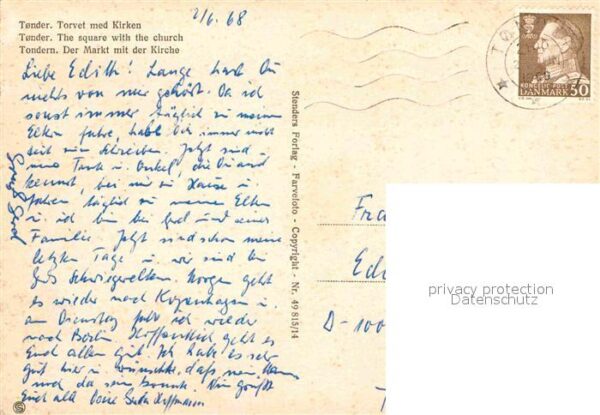 2/6. 68
Tønder. Torvet med Kirken
Tønder. The square with the church
Tondern. Der Markt mit der Kirche
Liebe Edith! Lange hast Du
nichts von mir gehört. Da ich
sonst immer täglich zu meinen
Eltern fahre, habe ich immer nicht
Zeit zum Schreiben. Jetzt sind
meine Tante u. Onkel, die Du auch
kennst, bei mir zu Hause u.
fahren täglich zu meinen Eltern
u. ich bin bei und seiner
Familie. Jetzt sind schon meine
letzten Tage u. wir sind bei
Schwiegereltern. Morgen geht
es wieder nach Kopenhagen u.
am Dienstag fahr ich wieder
nach Berlin. Hoffentlich geht es
Euch allen gut. Ich habe es sehr
gut hier u. wünschte, dass mein Mann
noch da sein könnte. Nun grüßt
Euch alle Deine
Stenders Forlag - Farvefoto - Copyright - Nr. 49 815/14
KONGELIG POST
DANMARK 50
D-100
privacy protection
Datenschutz